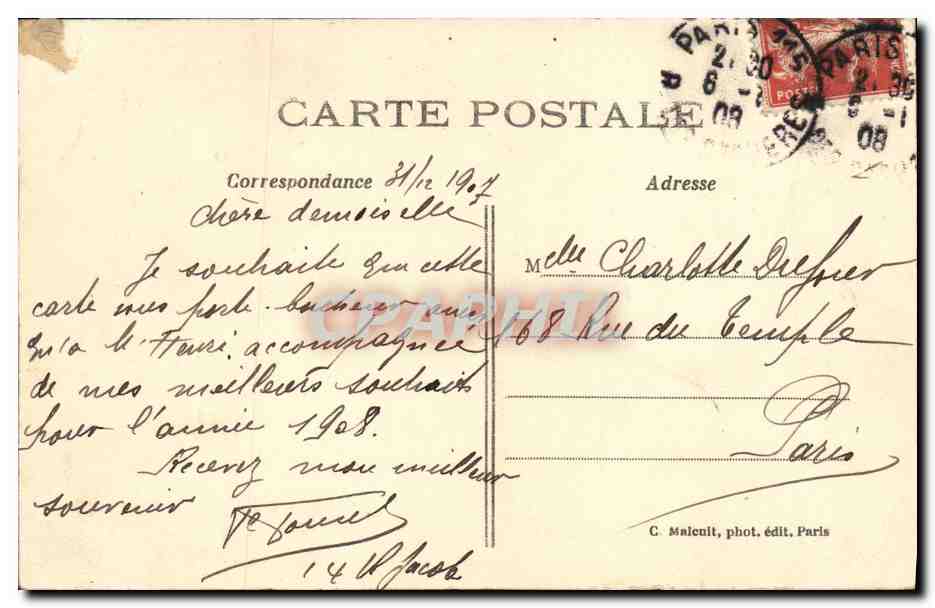 CARTE POSTALE
PARIS 115
21 30
6 -1
08
POSTES
PARIS
6 -1
08
Correspondance 31/12 1907
Adresse
Chère demoiselle
Je souhaite que cette
carte vous porte bonheur ainsi
qu'à M. Henri, accompagnée
de mes meilleurs souhaits
pour l'année 1908.
Recevez mon meilleur
souvenir
14 R Jacob
Mdlle Charlotte
168 Rue du Temple
Paris
CPARHTI
C. Malcuit, phot. édit. Paris